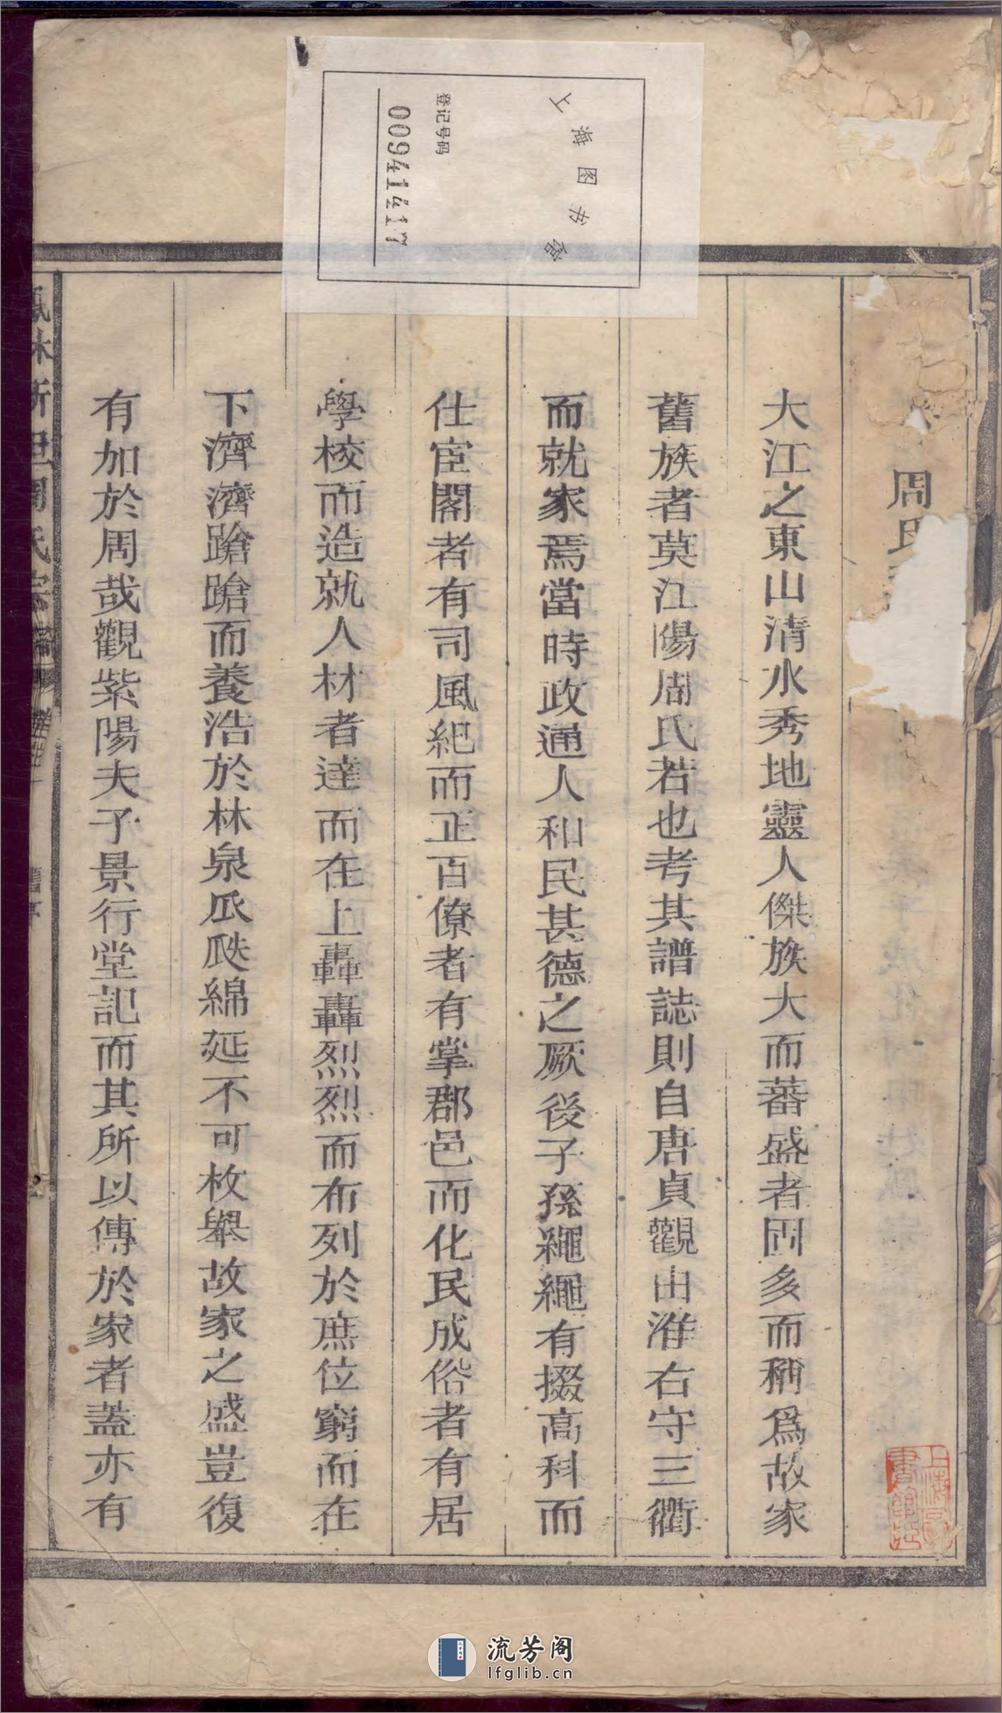 上海图书馆
登记号码
00941417
周氏
大江之東山清水秀地靈人傑族大而蕃盛者固多而稱爲故家
舊族者莫江陽周氏若也考其譜誌則自唐貞觀由淮右守三衢
而就家焉當時政通人和民甚德之厥後子孫繩繩有掇高科而
仕宦閣者有司風紀而正百僚者有掌郡邑而化民成俗者有居
學校而造就人材者達而在上轟轟烈烈而布列於庶位窮而在
下濟濟蹌蹌而養浩於林泉瓜瓞綿延不可枚舉故家之盛豈復
有加於周哉觀紫陽夫子景行堂記而其所以傳於家者蓋亦有
周氏宗譜
舊序
上海圖書館藏
流芳阁
lfglib.cn